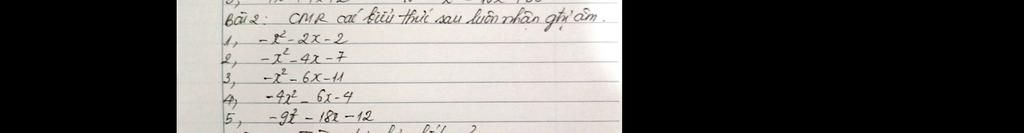 Bài 2: CMR các biểu thức sau luôn nhận giá trị âm.
1, -x² - 2x - 2
2, -x² - 4x - 7
3, -x² - 6x - 11
4, -4x² - 6x - 4
5, -9x² - 18x - 12